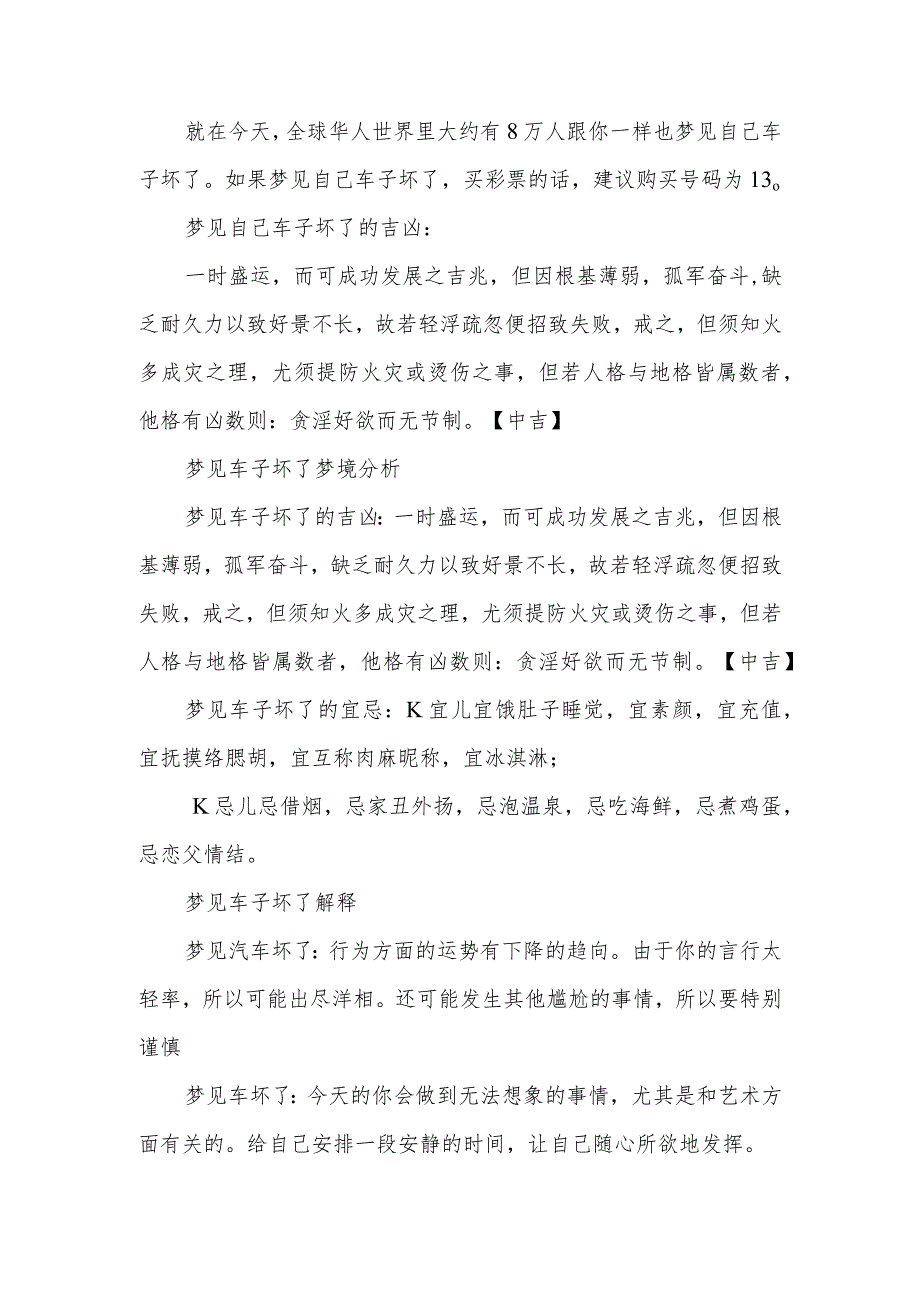 就在今天,全球华人世界里大约有 8 万人跟你一样也梦见自己车
子坏了。如果梦见自己车子坏了，买彩票的话，建议购买号码为 13o
梦见自己车子坏了的吉凶：
一时盛运，而可成功发展之吉兆，但因根基薄弱，孤军奋斗,缺
乏耐久力以致好景不长，故若轻浮疏忽便招致失败，戒之，但须知火
多成灾之理，尤须提防火灾或烫伤之事，但若人格与地格皆属数者，
他格有凶数则：贪淫好欲而无节制。【中吉】
梦见车子坏了梦境分析
梦见车子坏了的吉凶：一时盛运，而可成功发展之吉兆，但因根
基薄弱，孤军奋斗，缺乏耐久力以致好景不长，故若轻浮疏忽便招致
失败，戒之，但须知火多成灾之理，尤须提防火灾或烫伤之事，但若
人格与地格皆属数者，他格有凶数则：贪淫好欲而无节制。【中吉】
梦见车子坏了的宜忌：K 宜儿宜饿肚子睡觉，宜素颜，宜充值，
宜抚摸络腮胡，宜互称肉麻昵称，宜冰淇淋；
K 忌儿忌借烟，忌家丑外扬，忌泡温泉，忌吃海鲜，忌煮鸡蛋，
忌恋父情结。
梦见车子坏了解释
梦见汽车坏了：行为方面的运势有下降的趋向。由于你的言行太
轻率，所以可能出尽洋相。还可能发生其他尴尬的事情，所以要特别
谨慎
梦见车坏了：今天的你会做到无法想象的事情，尤其是和艺术方
面有关的。给自己安排一段安静的时间，让自己随心所欲地发挥。